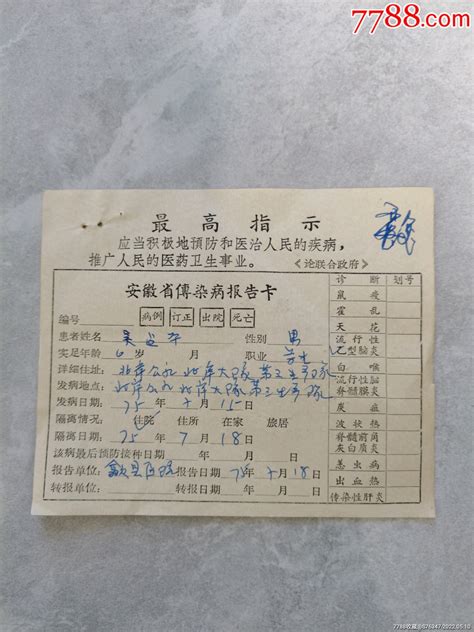 7788.com
最高指示
应当积极地预防和医治人民的疾病,
推广人民的医药卫生事业。
《论联合政府》
安徽省傳染病报告卡
编号 病例 訂正 出院 死亡
患者姓名 吴 性别 男
实足年龄 6 岁 月 职业 学生
详细住址: 北岸公社 北岸大队 第三生产队
发病地点: 北岸公社 北岸大队第三生产队
发病日期: 75 年 7 月 15 日
隔离情况: 住院 住所 在家 旅居
隔离日期: 75 年 7 月 18 日
该病最后预防接种日期 年 月
报告单位: 歙县医院 报告日期 75 年 7 月 18 日
转报单位: 转报日期 年 月 日
诊断 划号
鼠疫
霍乱
天花
流行性乙型脑炎
白喉
流行性脑脊髓膜炎
炭疽
波状热
脊髓前角灰白质炎
恙虫病
出血热
传染性肝炎